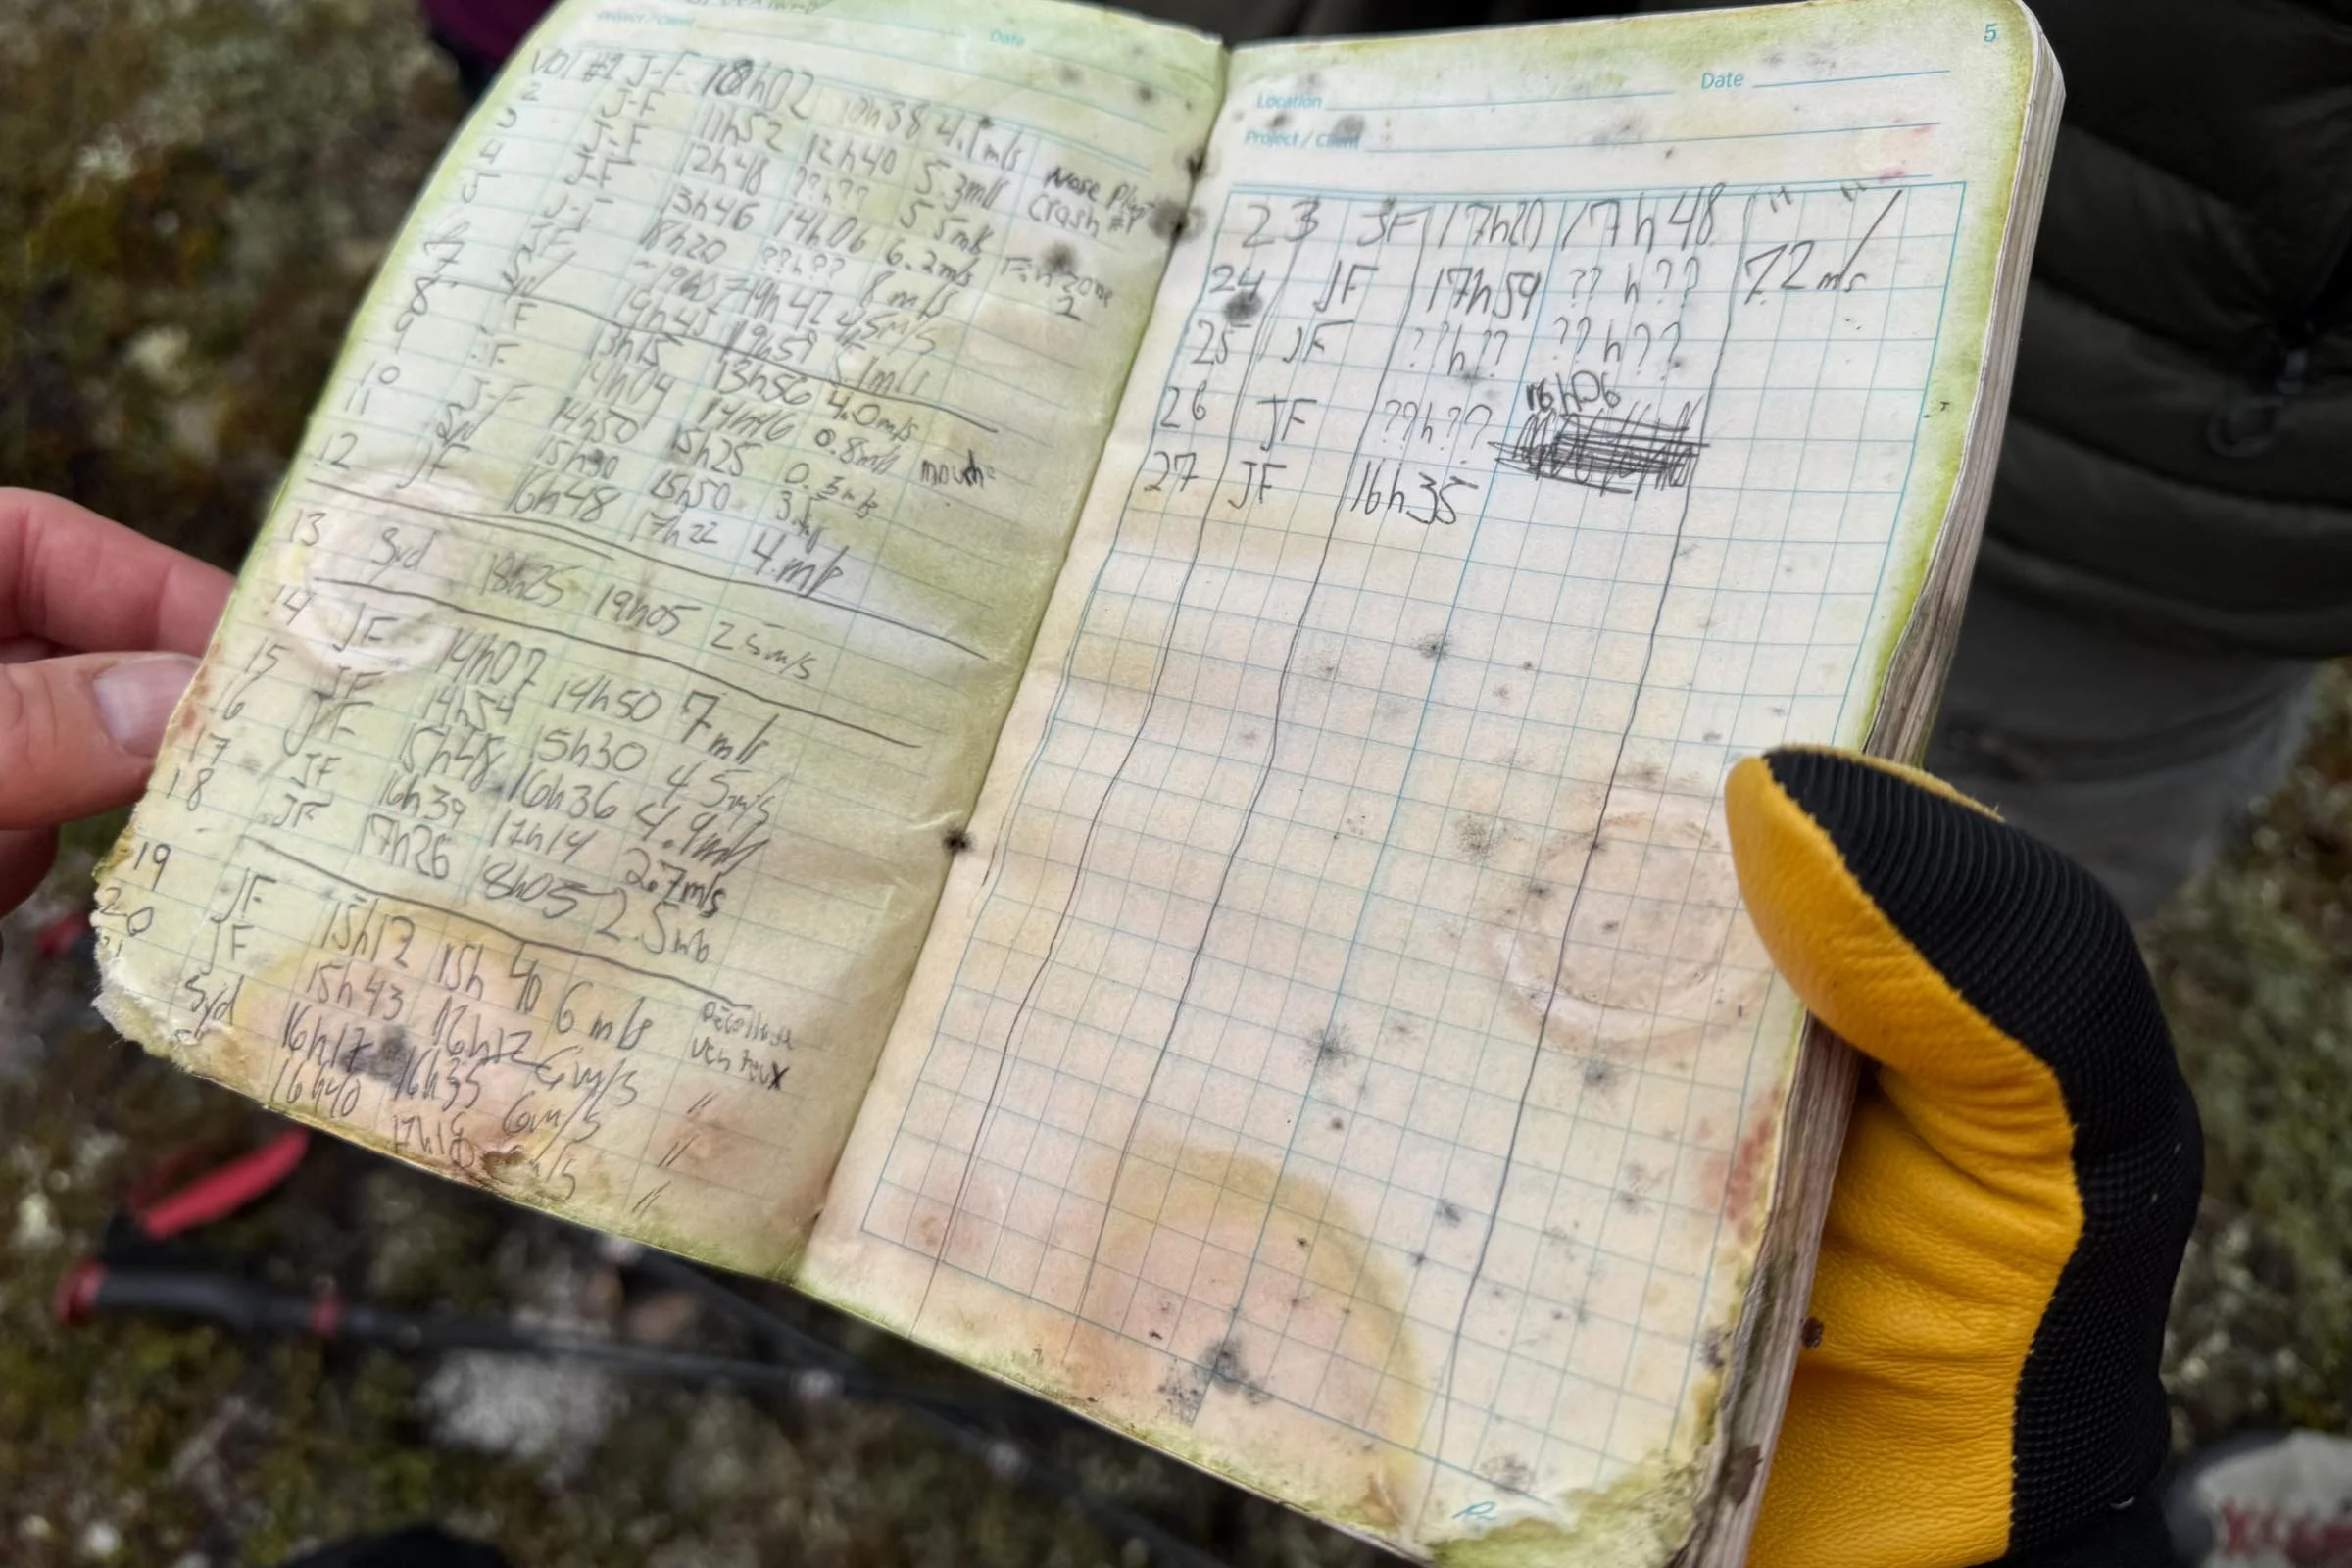 Project / Client Date
Vol #1 J-F 10h02 10h38 4.1m/s
2 J-F 11h52 12h40 5.3m/s Nose Plug
3 J-F 12h48 ??h?? 5.5m/s Crash #1
4 J-F 13h46 14h06 6.2m/s
5 J-F 18h20 ??h?? 8 m/s 2
19h42 4.5m/s
8 19h45 19h59
9 13h15 13h56 4.0m/s
10 J-F 14h04 14h46 0.8m/s mouche
11 14h50 15h25
15h30 15h50
12 JF 16h48 17h22 4.m/s
13 Syd 18h25 19h05 2 5m/s
14 JF 14h07 14h50 7 m/s
15 JF 14h54 15h30 4 5m/s
16 JF 15h48 16h36 4.9m/s
17 JF 16h39 17h14 2.7m/s
18 JF 17h26 18h05 2.5m/s
19 JF 15h12 15h 40 6 m/s Décollage
20 JF 15h43 16h12 6m/s venteux
21 Syd 16h17 16h35 6m/s "
16h40 17h18 m/s "
"
5
Location Date
Project / Client
23 JF 17h20 17h48 " "
24 JF 17h59 ??h?? 7.2 m/s
25 JF ??h?? ??h??
26 JF ??h?? 16h06
27 JF 16h35